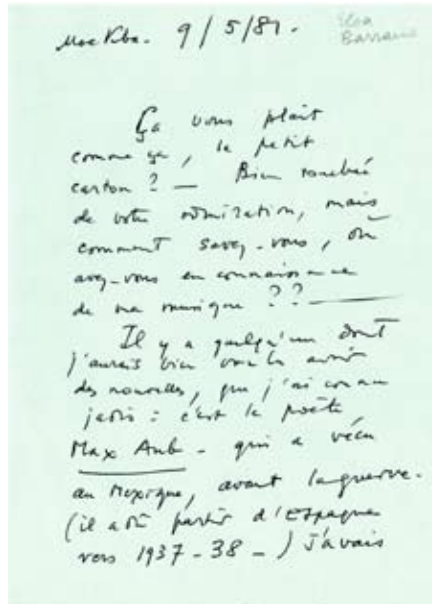 9/5/81.
Elsa
Barraine
Ça vous plaît
comme ça, le petit
carton ? — Bien touchée
de votre admiration, mais
comment savez-vous, où
avez-vous eu connaissance
de ma musique ??
Il y a quelqu'un dont
j'aurais bien voulu avoir
des nouvelles, que j'ai connu
jadis : c'est le poète
Max Aub - qui a vécu
au Mexique, avant la guerre.
(il a dû partir d'Espagne
vers 1937-38 -) J'avais